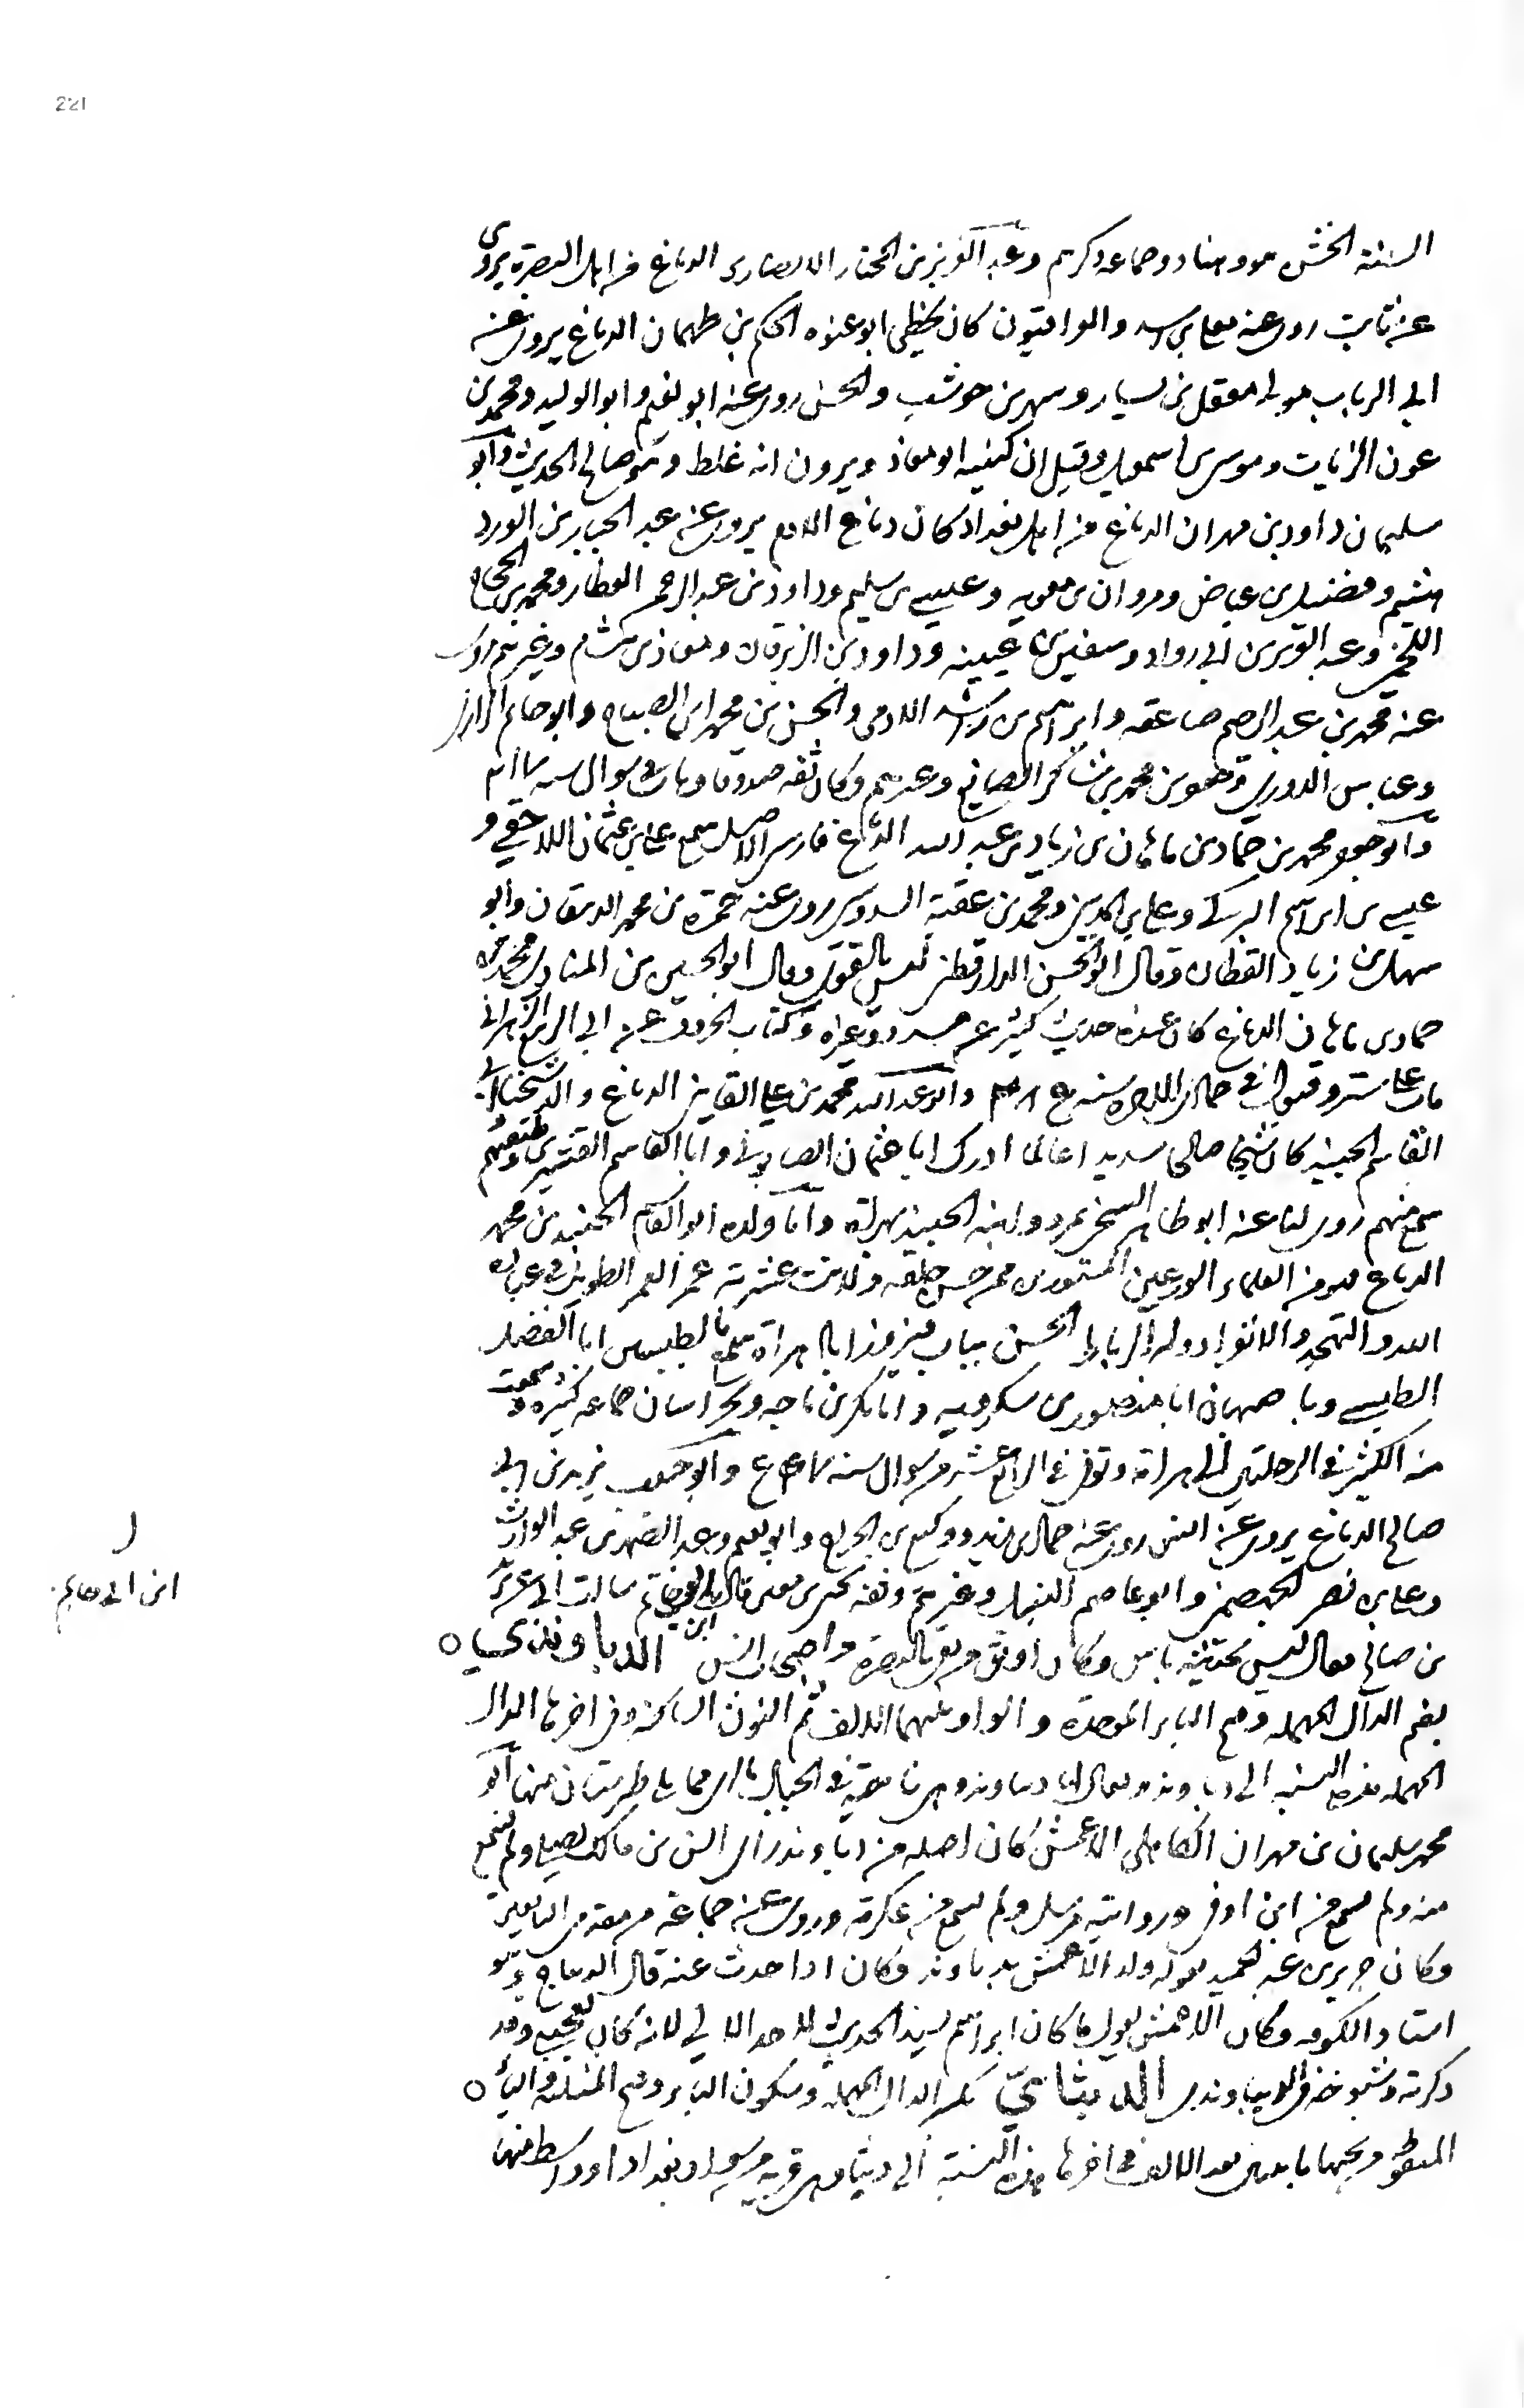 221
السنة الخشن هو وهناد وجماعة ذكرتهم وعبد العزيز بن المختار الانصارى الدباغ من اهل البصرة يروى
عن ثابت روى عنه معلى بن اسد والعراقيون كان يخطئ ابو عزه الحكم بن طهمان الدباغ يروى عن
ابى الرباب مولى معقل بن يسار وشهر بن حوشب والحسن روى عنه ابو نعيم وابو الوليد ومحمد بن
عون الزيات وموسى بن اسمعيل وقيل ان كنيته ابو معاذ ويرون انه غلط وهو صالح الحديث وابو
سليمان داود بن مهران الدباغ من اهل بغداد كان دباغ الادم يروى عن عبد الجبار بن الورد
هشيم وفضيل بن عياض ومروان بن معويه وعيسى بن سليم وداود بن عبد الرحمن العطار ومحمد بن الحجاج
اللخمى وعبد العزيز بن ابى رواد وسفين بن عيينه وداود بن الزبرقان ومعاذ بن هشام وغيرهم روى
عنه محمد بن عبد الرحيم صاعقه وابراهيم بن راشد الادمى والحسن بن محمد ابن الصباح وابو حاتم الرازى
وعباس الدورى وجعفر بن محمد بن شاكر الصايغ وغيرهم وكان ثقه صدوقا ومات فى شوال سنه
وابو جعفر محمد بن حماد بن ماهان بن زياد بن عبد الله الدباغ فارسى الاصل سمع على بن عثمان اللاحقى و
عيسى بن ابراهيم البركى وعلى بن المدينى ومحمد بن عقبة السدوسى روى عنه حمزة بن محمد الدهقان وابو
سهل بن زياد القطان وقال ابو الحسن الدارقطنى ليس بالقوى وقال ابو الحسين بن المنادى محمد بن
حماد بن ماهان الدباغ كان عنده حديث كثير عن مسدد وغيره وكتاب الحروف عن ابى الربيع الزهرانى
مات على ستر وقبول فى جمادى الاخره سنه وابو عبد الله محمد بن على القاينى الدباغ والد شيخنا ابى
القاسم الجنيد كان شيخا صالحا سديدا عالما ادرك ابا عثمان الصابونى وابا القاسم القشيرى وطبقتهم
سمع منهم روى لنا عنه ابو طاهر السنجى بمرو وابنه الجنيد بهراة واما ولده ابو القاسم الجنيد بن محمد
الدباغ فهو من العلماء الورعين المتعبدين ممن حسن خلقه ولانت عشرته عمر العمر الطويل فى عبادة
الله والتهجد والانفراد وله الرباط الحسن بباب فيروزاباد هراة سمع بالطبسين ابا الفضل
الطبسى وباصبهان ابا منصور بن شكرويه وابا بكر بن ماجه وبخراسان جماعه كثيرة وسمعت
منه الكثير فى الرحلتين الى هراة وتوفى فى الرابع عشر من شوال سنه وابو حبيب يزيد بن ابى
صالح الدباغ يروى عن انس روى عنه حماد بن زيد ووكيع بن الجراح وابو نعيم وعبد الصمد بن عبد الوارث
وعلى بن نصر الجهضمى وابو عاصم النبيل وغيرهم وثقه يحيى بن معين قال ابن ابى حاتم سالت ابى عن يزيد
بن ابى صالح فقال ليس بحديثه باس وكان اوثق من بقى بالبصرة من اصحاب انس الدباوندي
بضم الدال المهمله وفتح الباء الموحدة والواو بينهما الالف ثم النون الساكنه وفى اخرها الدال
المهمله هذه النسبه الى دباوند ويقال لها دنباوند وهى ناحية فى الجبال بالرى مما يلى طبرستان منها ابو
محمد سليمان بن مهران الكاهلى الاعمش كان اصله من دباوند راى انس بن مالك يصلى ولم يسمع
منه ولم يسمع من ابن ابى اوفى وروايته مرسل ولم يسمع من عكرمة وروى عنه جماعة من التابعين
وكان جرير بن عبد الحميد يقول ولد الاعمش بدباوند وكان اذا حدث عنه قال الديباج وهو
استاد الكوفه وكان الاعمش يقول ما كان ابراهيم يسند الحديث لاحد الا لى لانه كان يعجب وقد
ذكرته وشيوخه فى الدنباوندى الدبثايي بكسر الدال المهمله وسكون الباء وفتح المثلثه والياء
المنقوطه من تحتها باثنتين بعد الالف فى اخرها هذه النسبة الى دبثا وهى قرية من سواد بغداد او واسط منها
ابن ابى حاتم